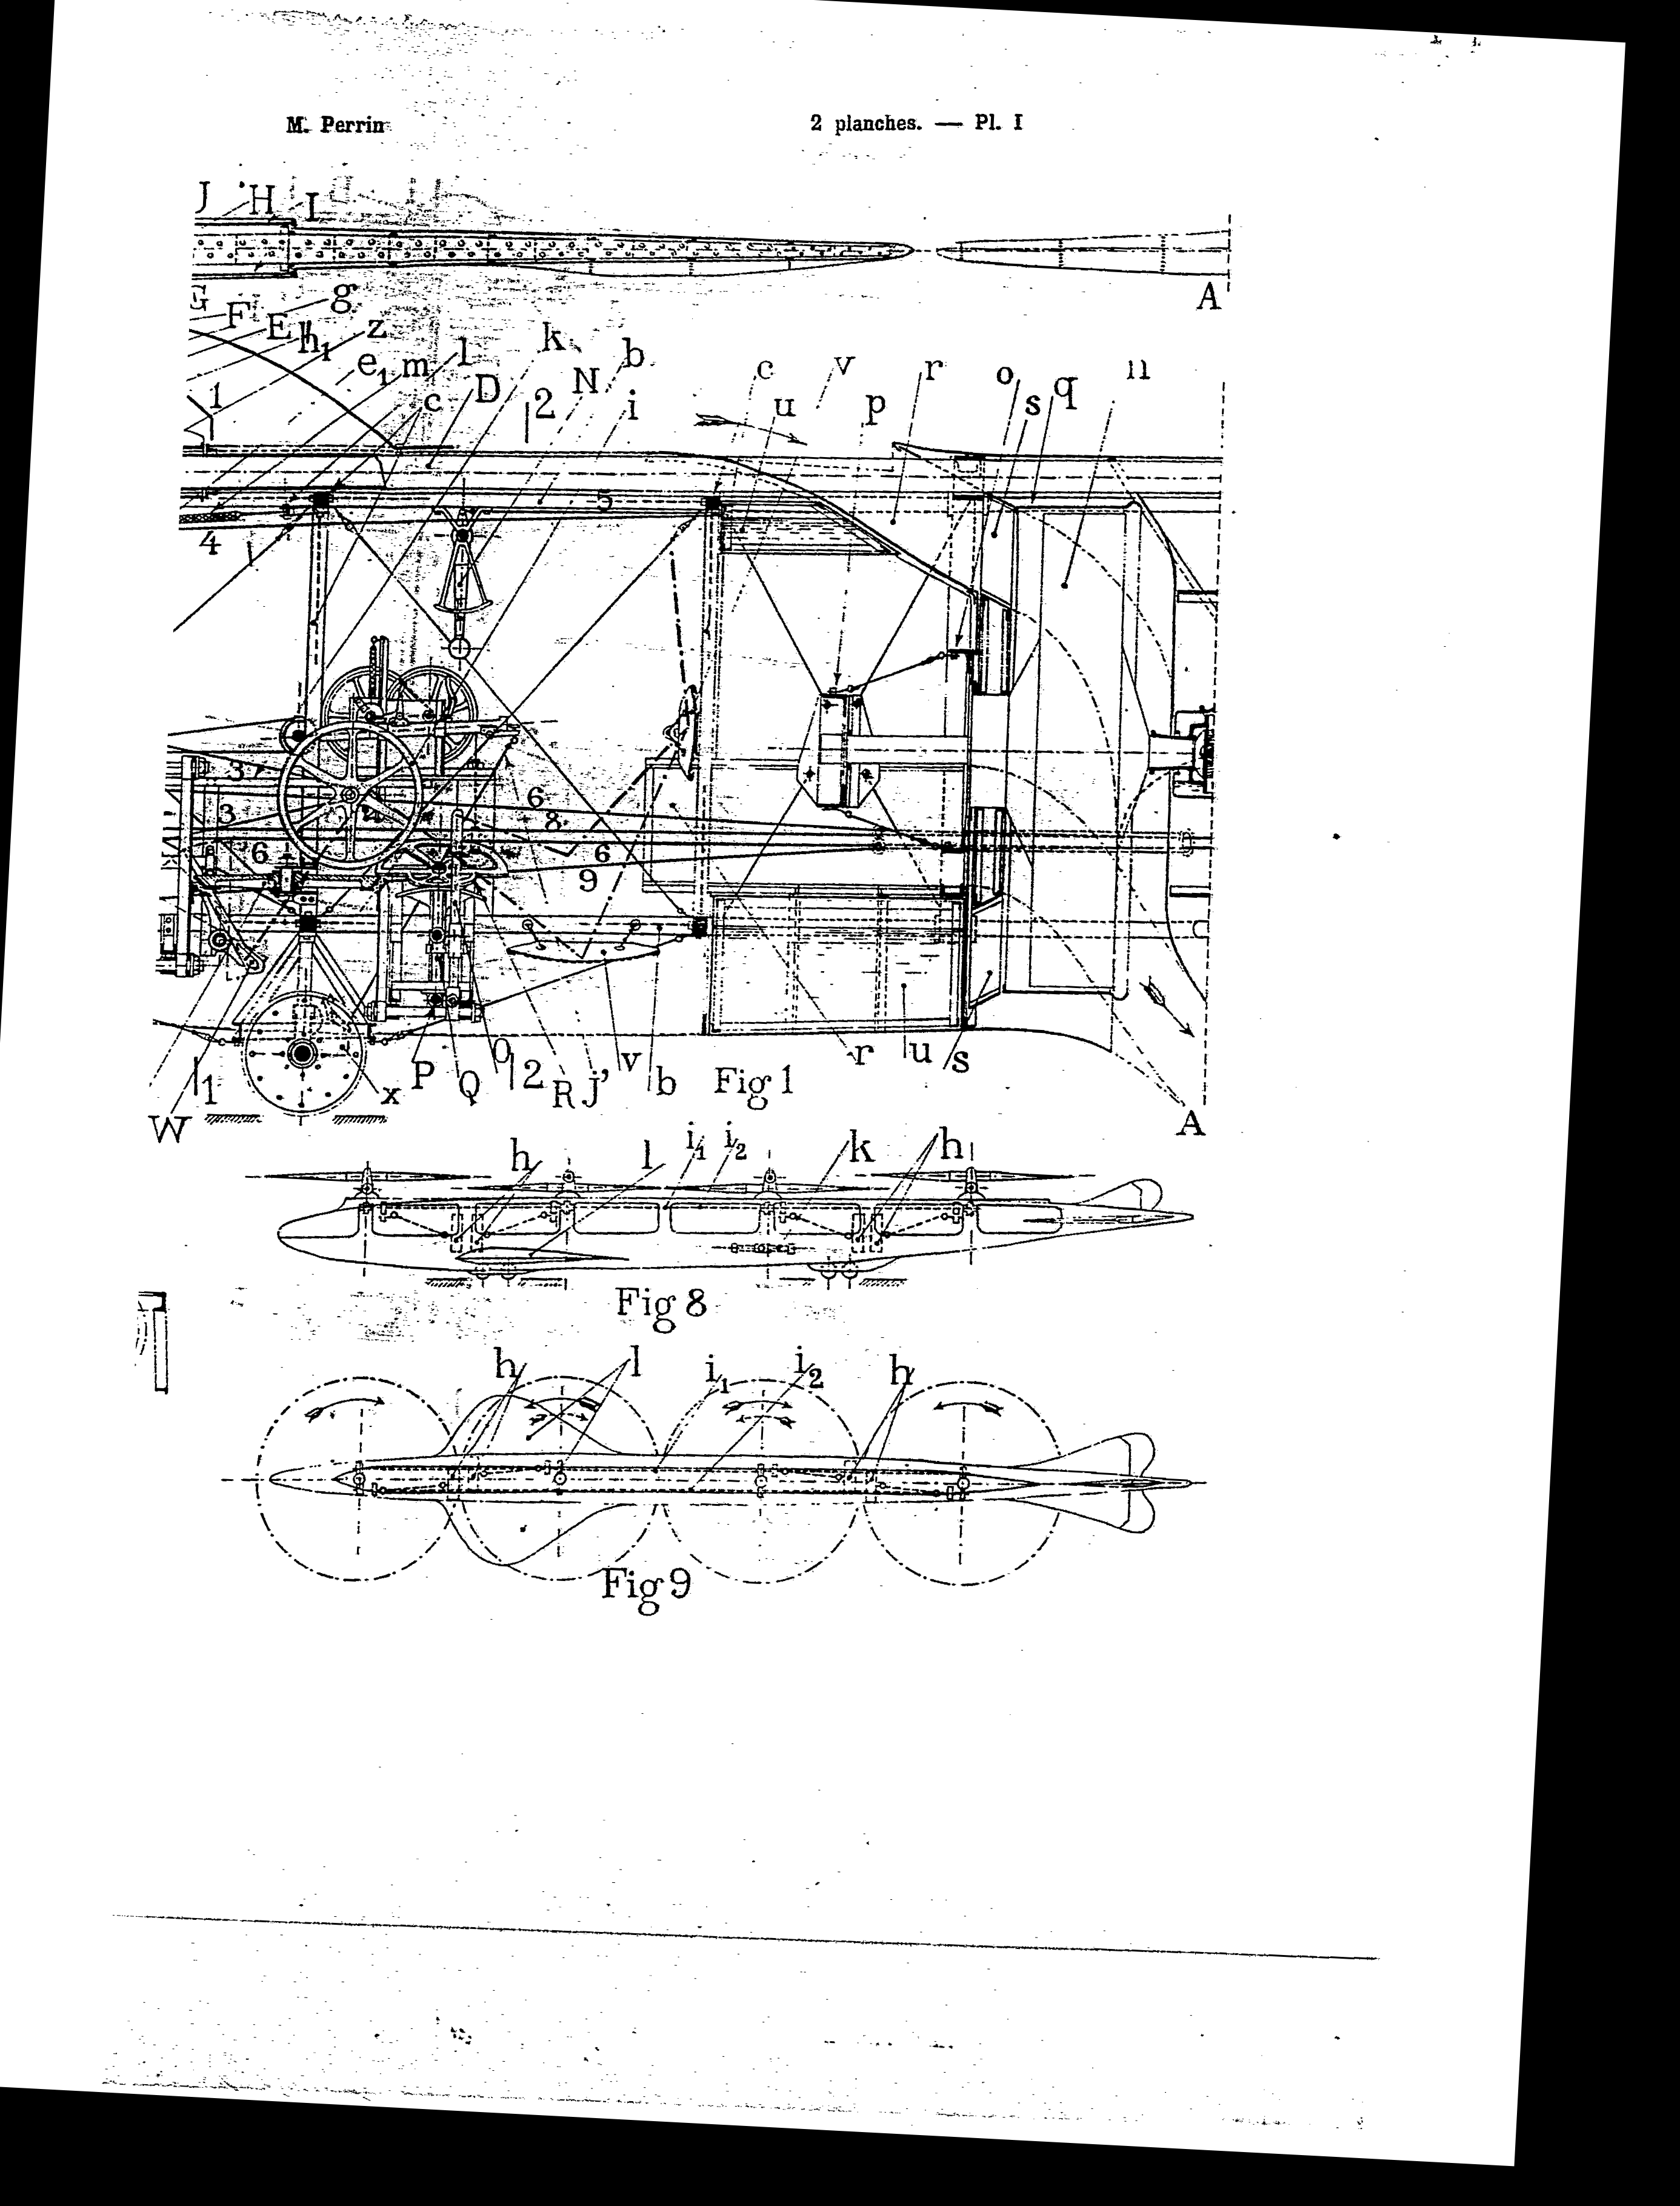 M. Perrin 2 planches. — Pl. I
J H I
G F E h1 g z A
e1 m l k N b c v r o q n
1 c D 2 i u p s
5
4
3 6
3 2 4 8
6 6
9
1 x P Q O 2 R J' v b Fig 1 r u s
W A
h l i1 i2 k h
Fig 8
h l i1 i2 h
Fig 9